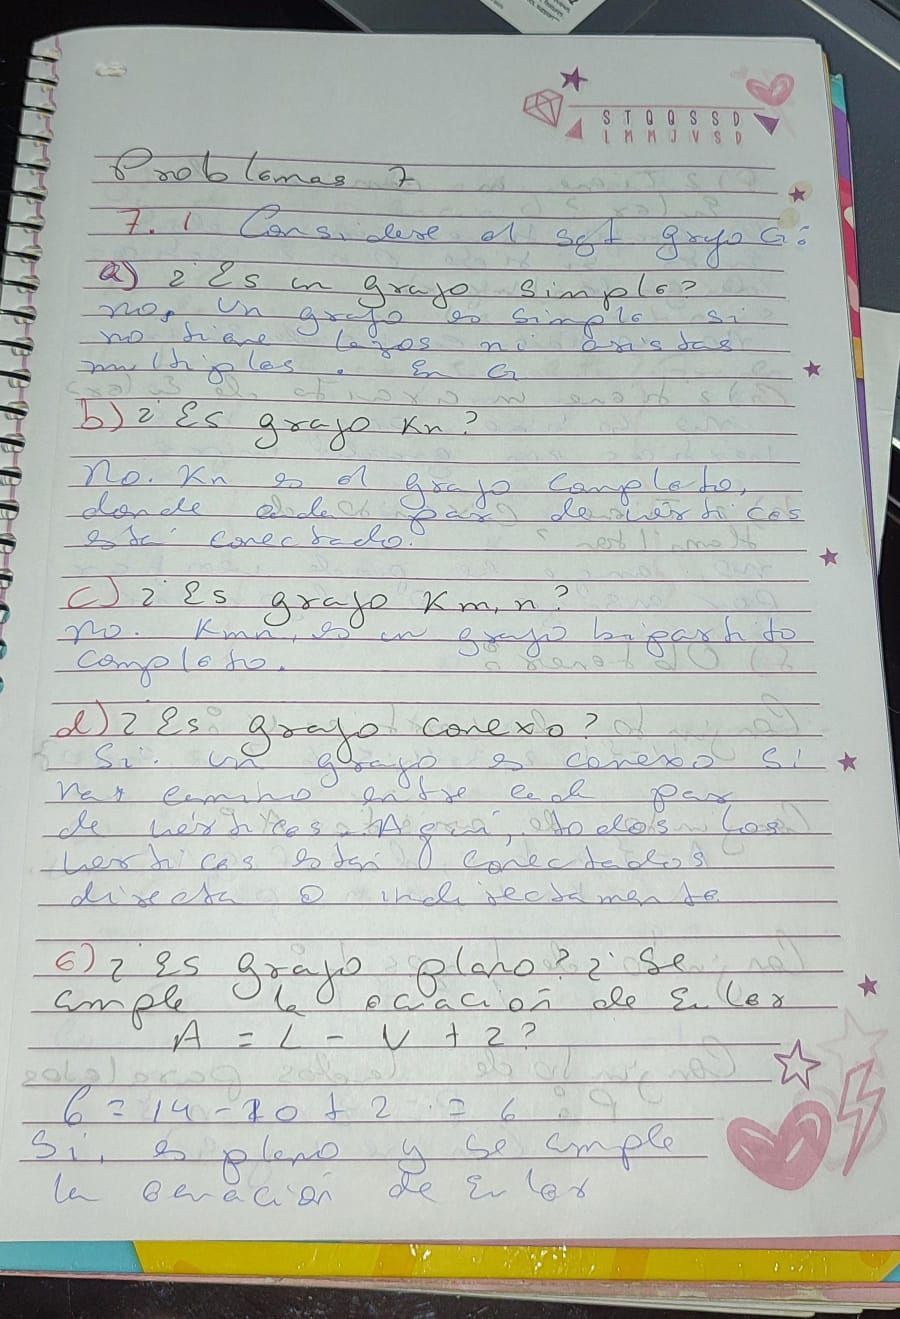 S T Q Q S S D
L M M J V S D
Problemas 7
7.1 Considere el sgt grafo G:
a) ¿Es un grafo simple?
no, un grafo es simple si
no tiene lazos ni aristas
multiples. En G
b) ¿Es grafo Kn?
No. Kn es el grafo completo,
donde cada par de vértices
está conectado.
c) ¿Es grafo Km,n?
no. Kmn, es un grafo bipartito
completo.
d) ¿Es grafo conexo?
Si. un grafo es conexo si
hay camino entre cada par
de vértices. Aquí, todos los
vertices están conectados
directa o indirectamente.
e) ¿Es grafo plano? ¿Se
cumple la ecuación de Euler
A = L - V + 2?
6 = 14 - 10 + 2 = 6
Si, es plano y se cumple
la ecuación de Euler